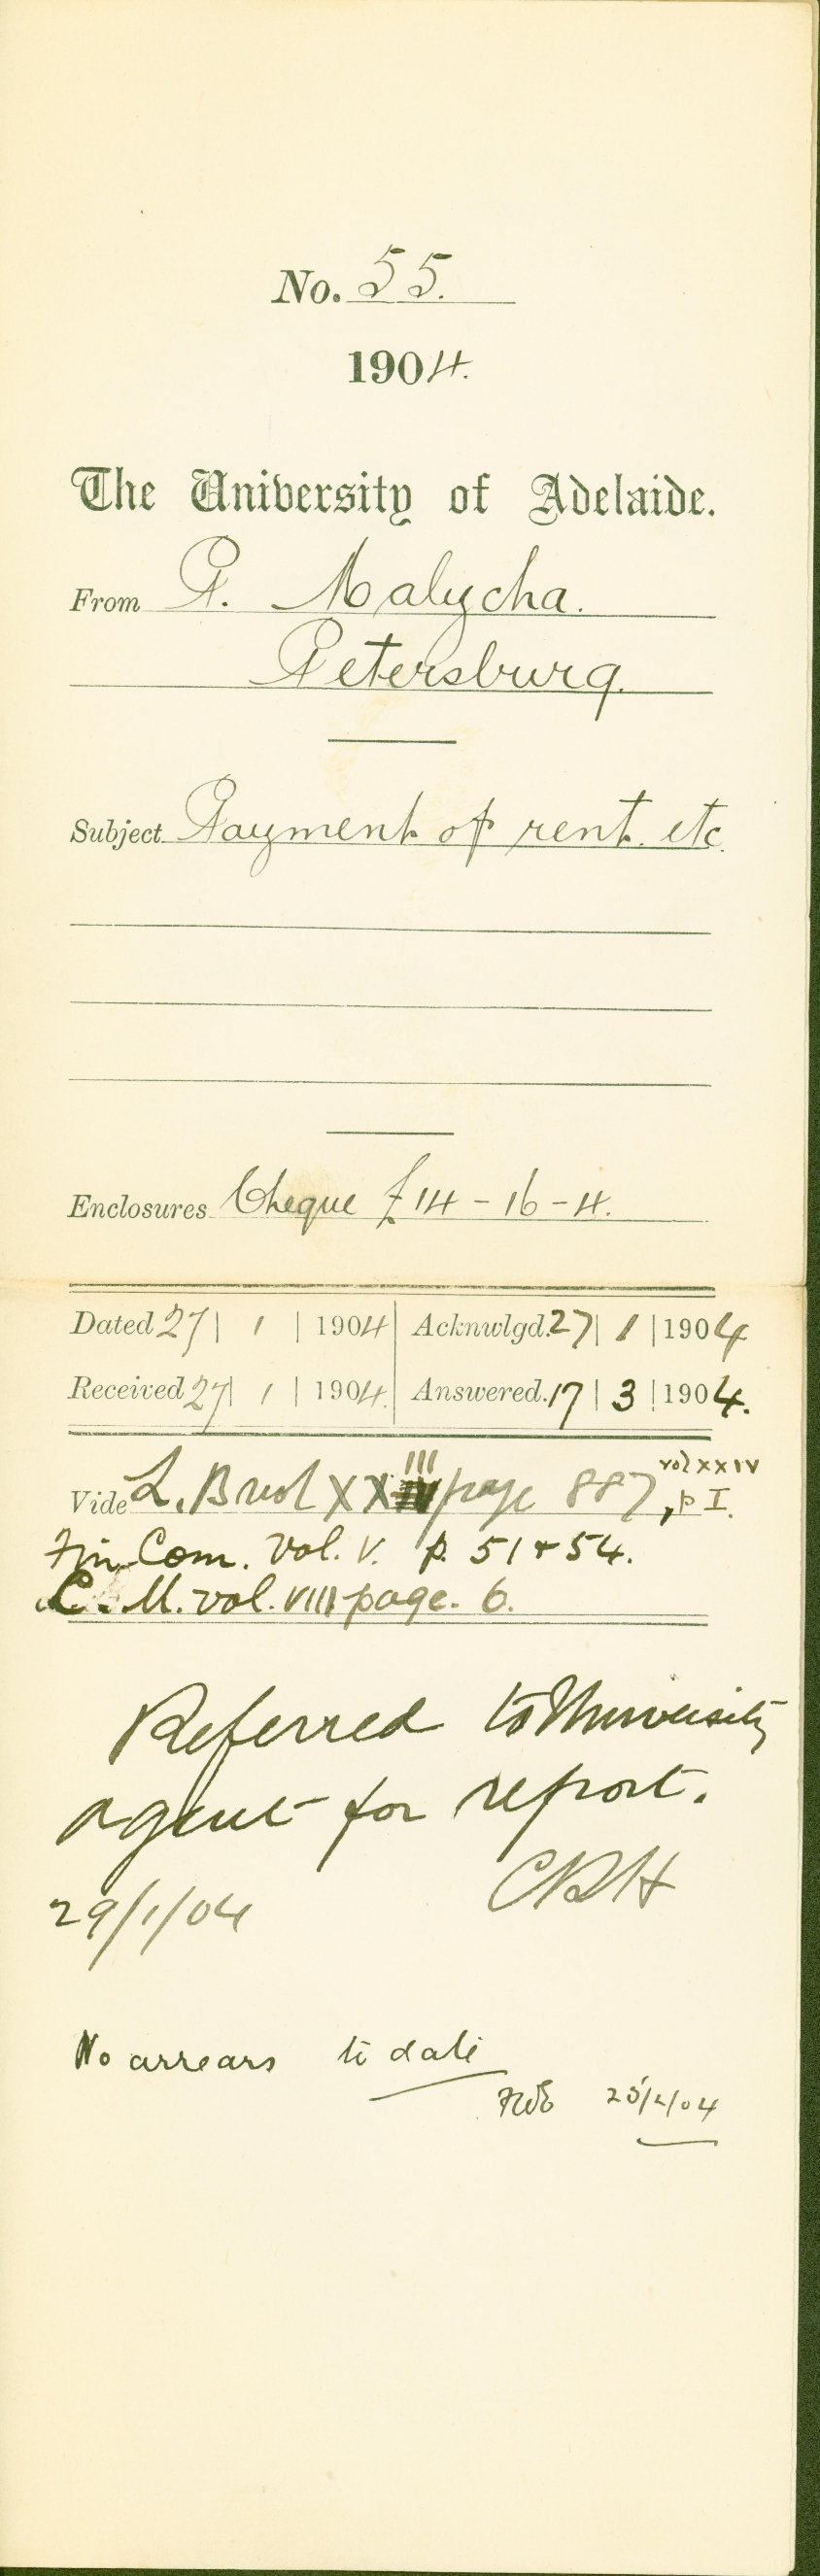 No. 55.
1904.
The University of Adelaide.
From P. Malycha.
Petersburg.
Subject Payment of rent. etc.
Enclosures Cheque £14-16-4.
Dated 27 | 1 | 1904 | Acknwlgd. 27 | 1 | 1904
Received 27 | 1 | 1904. | Answered. 17 | 3 | 1904.
Vide L. B vol XXIII page 887, vol XXIV p I.
Fin. Com. Vol. V. p. 51 + 54.
C. M. vol. VIII page. 6.
Referred to University
agent for report.
29/1/04 CRH
No arrears to date
25/2/04